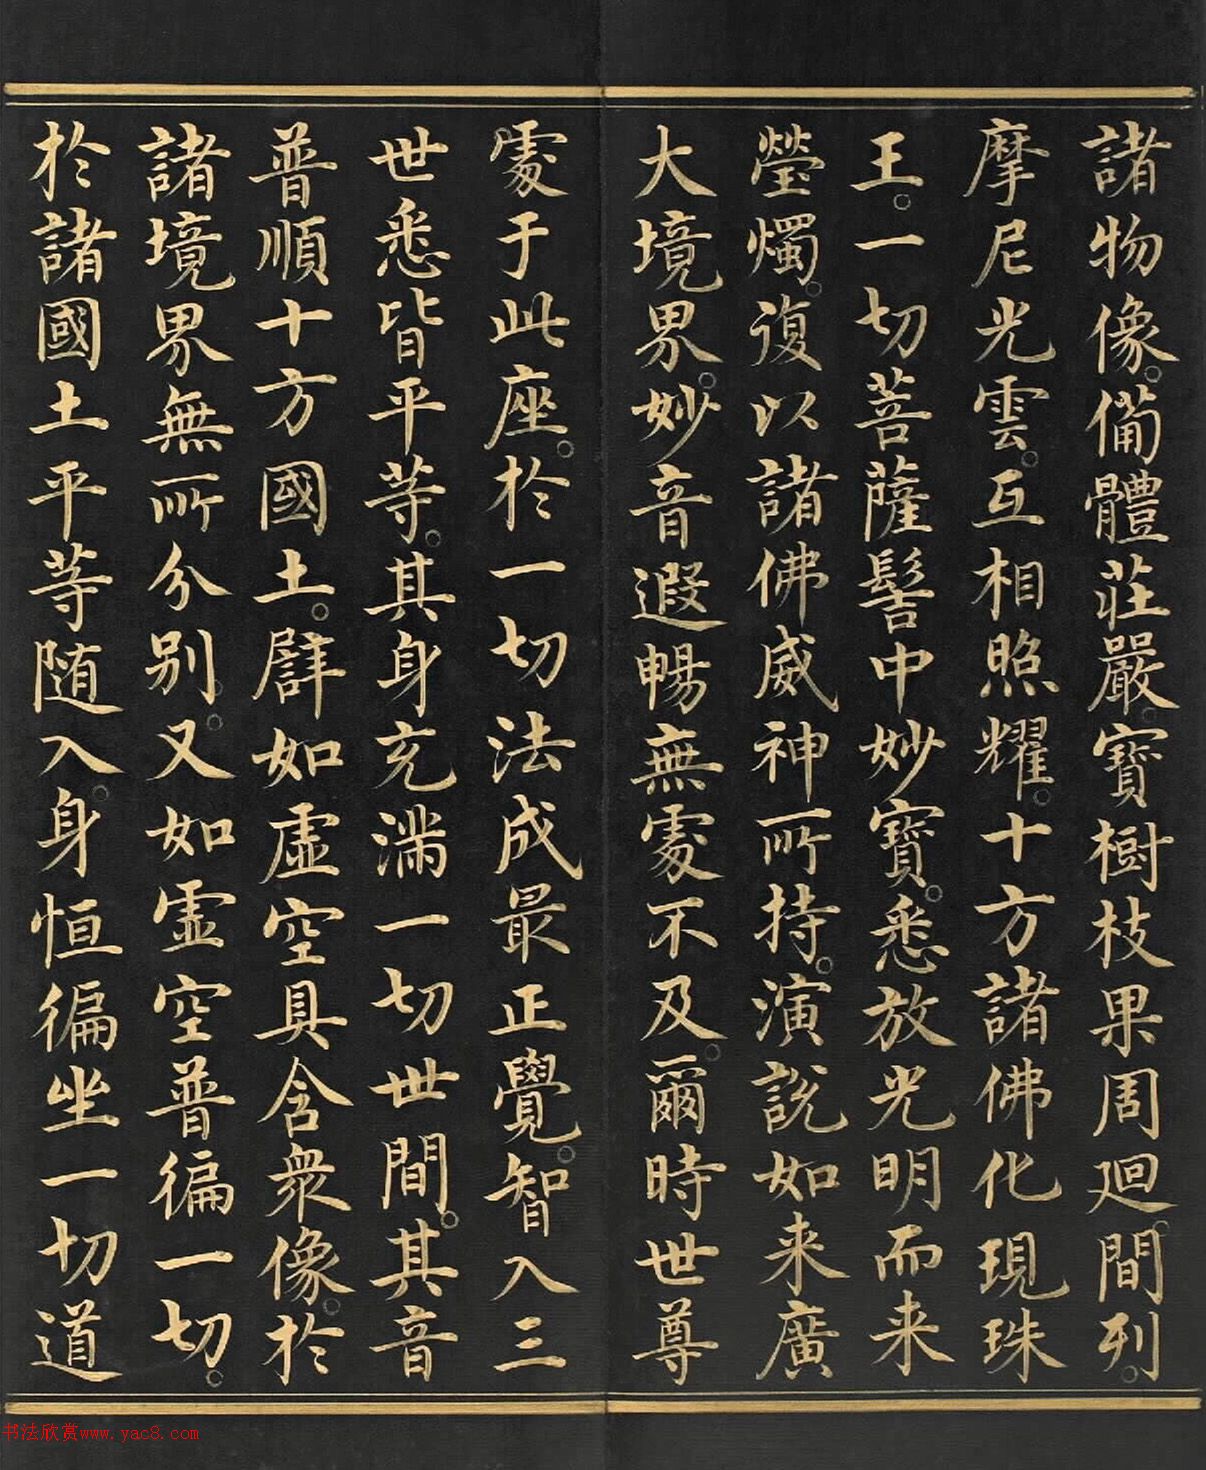 諸物像。備體莊嚴。寶樹枝果周迴間列。
摩尼光雲。互相照耀。十方諸佛化現珠
王。一切菩薩髻中妙寶。悉放光明而来
瑩燭。復以諸佛威神所持。演說如来廣
大境界。妙音遐暢無處不及。爾時世尊
處于此座。於一切法成最正覺。智入三
世悉皆平等。其身充滿一切世間。其音
普順十方國土。譬如虛空具含衆像。於
諸境界無所分別。又如虛空普徧一切。
於諸國土平等随入。身恒徧坐一切道
书法欣赏www.yac8.com